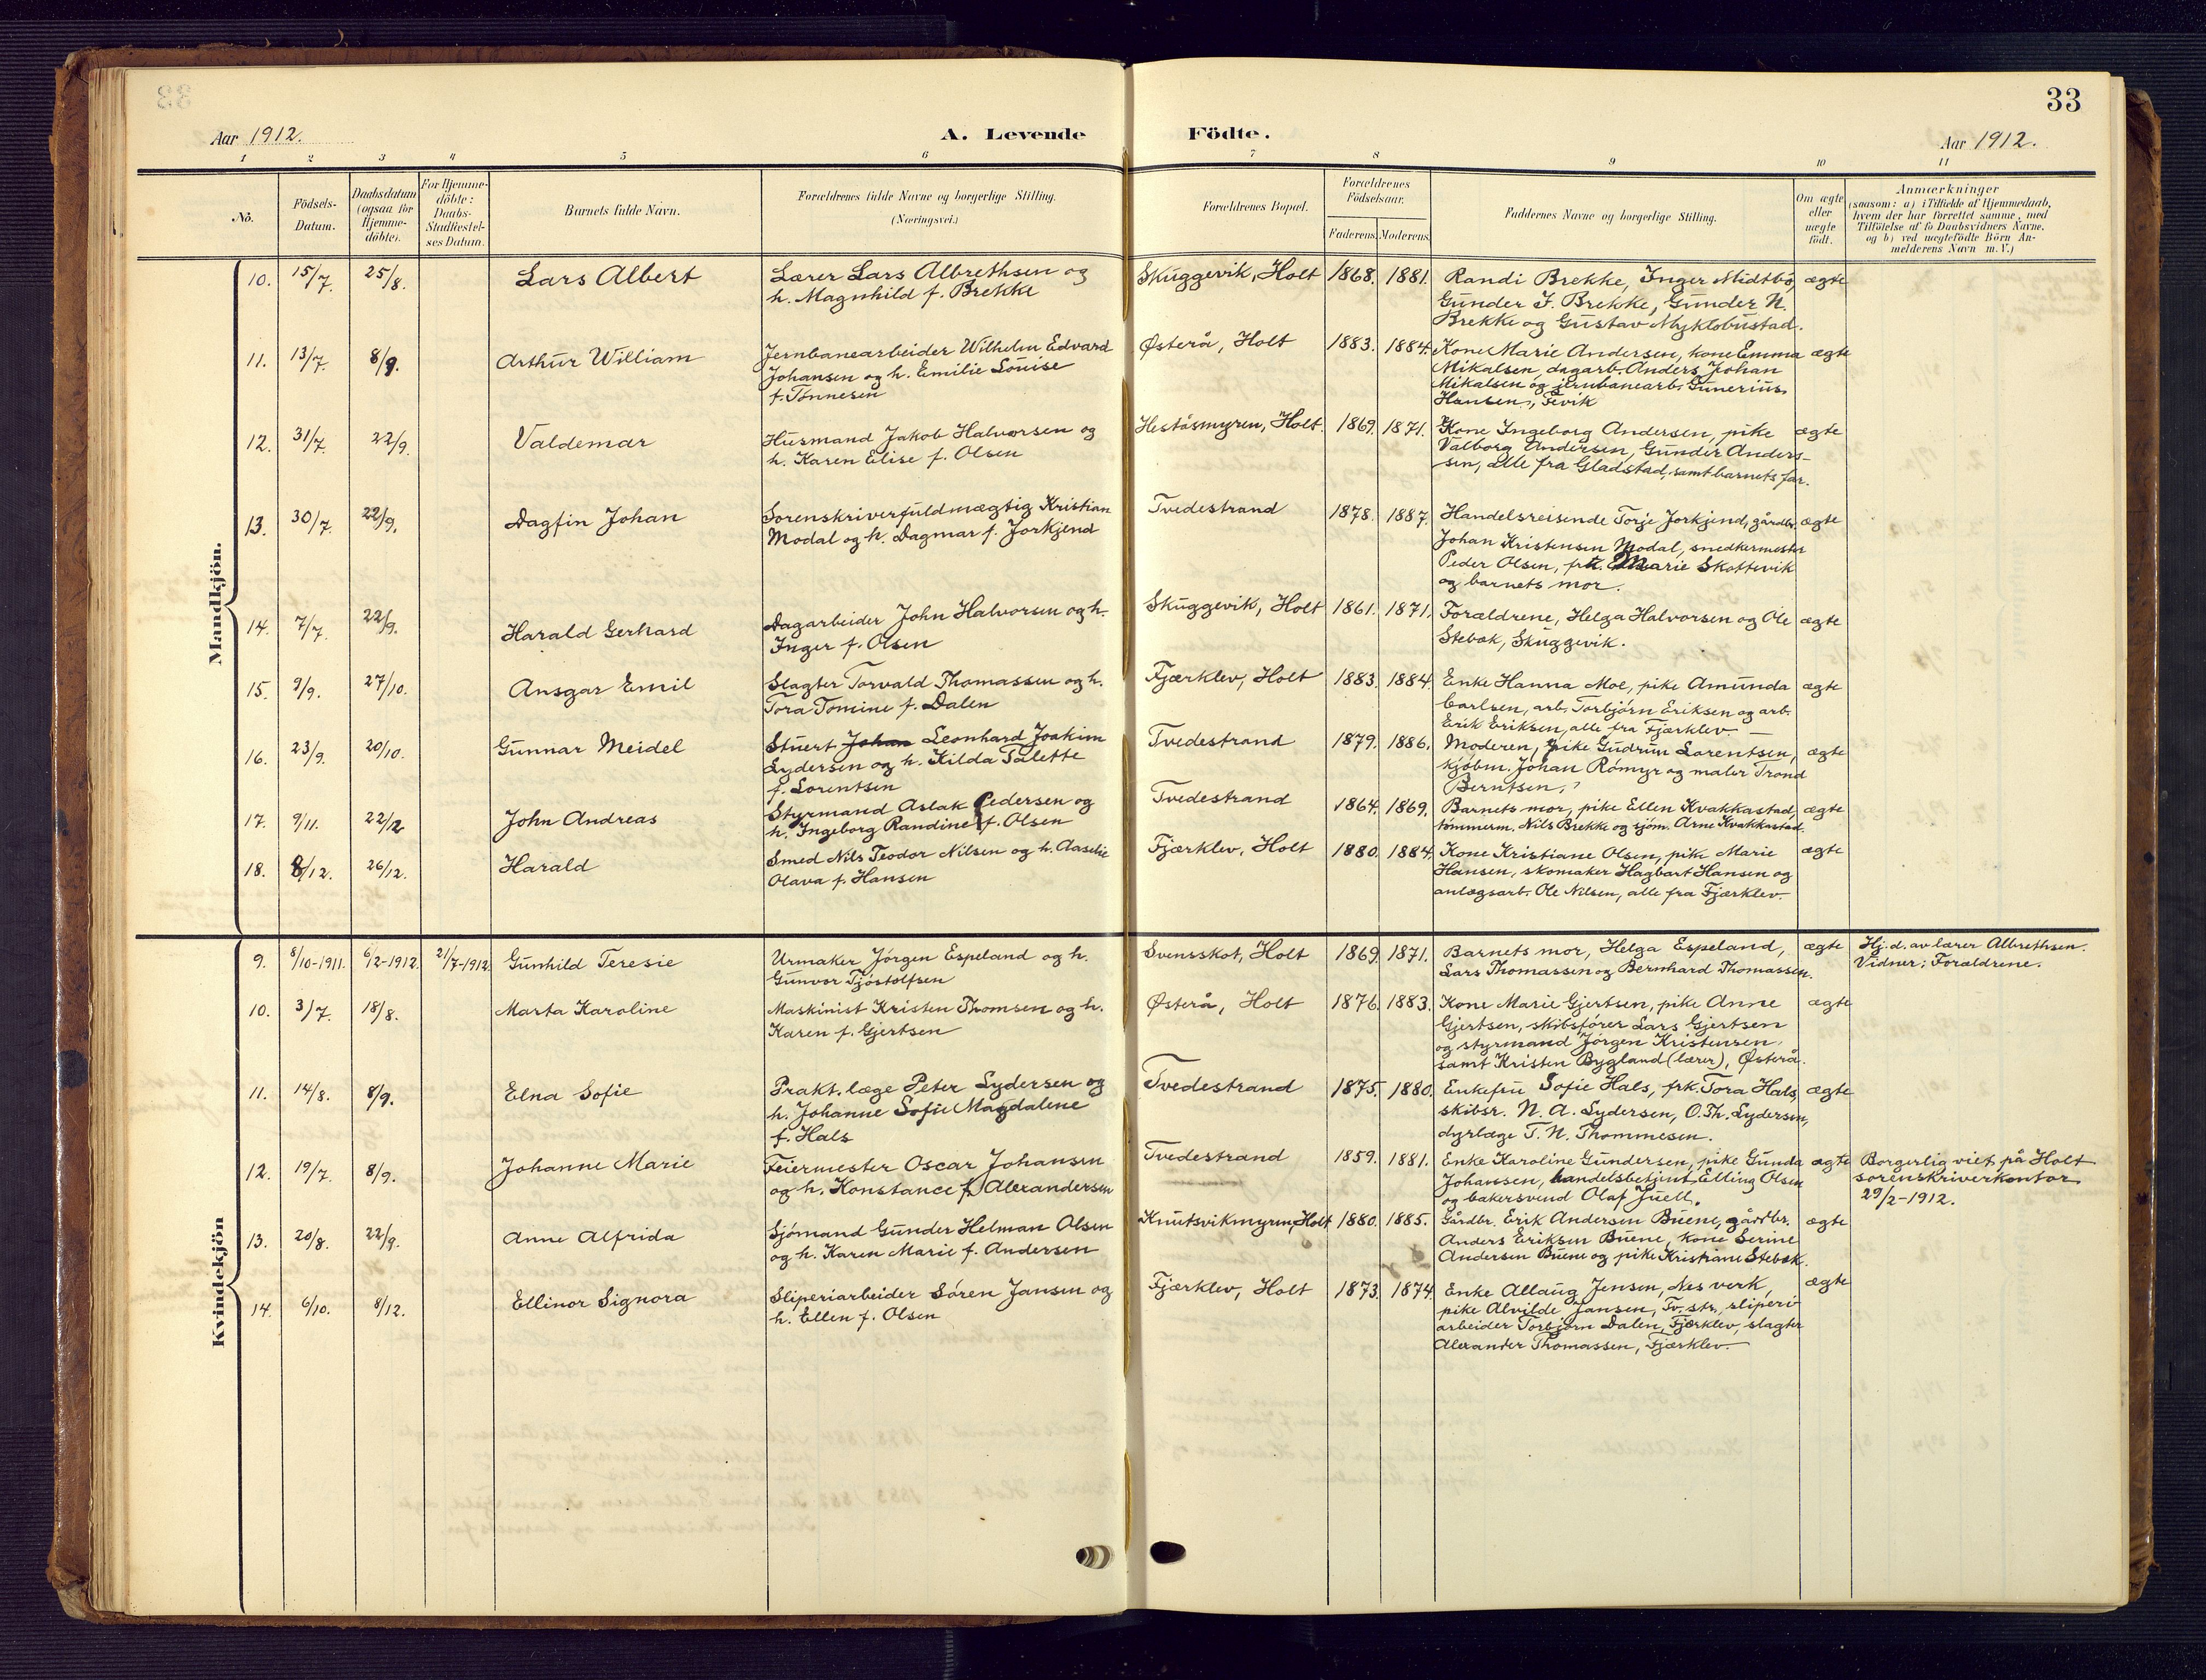 33
Aar 1912.
A. Levende Födte.
Aar 1912.
1 2 3 4 5 6 7 8 9 10 11
Nô.
Födsels-
Datum.
Daabsdatum
(ogsaa for
Hjemme-
döbte).
For Hjemme-
döbte:
Daabs-
Stadfæstel-
ses Datum.
Barnets fulde Navn.
Forældrenes fulde Navne og borgerlige Stilling.
(Næringsvei.)
Forældrenes Bopæl.
Forældrenes
Födselsaar.
Faderens. Moderens.
Faddernes Navne og borgerlige Stilling.
Om ægte
eller
uægte
födt.
Anmærkninger
(saasom: a) i Tilfælde af Hjemmedaab,
hvem der har forrettet samme, med
Tilföielse af to Daabsvidners Navne.
og b) ved uægtefödte Börn An-
melderens Navn m. V.)
Mandkjön.
10. 15/7. 25/8. Lars Albert
Lærer Lars Albrethsen og
h. Magnhild f. Brekke
Skuggevik, Holt 1868. 1881.
Randi Brekke, Inger Midtbö,
Gunder J. Brekke, Gunder N.
Brekke og Gustav Myklobustad.
ægte
11. 13/7. 8/9. Arthur William
Jernbanearbeider Wilhelm Edvard
Johansen og h. Emilie Louise
f. Tönnesen
Østerå, Holt 1883. 1884.
Kone Marie Andersen, kone Emma
Mikalsen, dagarb. Anders Johan
Mikalsen og jernbanearb. Gunerius
Hansen, Fevik
ægte
12. 31/7. 22/9. Valdemar
Husmand Jakob Halvorsen og
h. Karen Elise f. Olsen
Heståsmyren, Holt. 1869. 1871.
Kone Ingeborg Andersen, pike
Valborg Andersen, Gunder Anders-
sen, alle fra Gladstad, samt barnets far.
ægte
13. 30/7. 22/9. Dagfin Johan
Sorenskriverfuldmægtig Kristian
Modal og h. Dagmar f. Jorkjend
Tvedestrand 1878. 1887.
Handelsreisende Torje Jorkjend, gårdbr.
Johan Kristensen Modal, snedkermester
Peder Olsen, frk. Marie Skottevik
og barnets mor.
ægte
14. 7/7. 22/9. Harald Gerhard
Dagarbeider John Halvorsen og h.
Inger f. Olsen
Skuggevik, Holt 1861. 1871.
Forældrene, Helga Halvorsen og Ole
Stebæk, Skuggevik.
ægte
15. 9/9. 27/10. Ansgar Emil
Slagter Torvald Thomassen og h.
Tora Tomine f. Dalen
Fjærklev, Holt 1883. 1884.
Enke Hanna Moe, pike Amunda
Carlsen, arb. Torbjörn Eriksen og arb.
Erik Eriksen, alle fra Fjærklev.
ægte
16. 23/9. 20/10. Gunnar Meidel
Stuert Johan Leonhard Joakim
Lydersen og h. Hilda Talette
f. Lorentsen
Tvedestrand 1879. 1886.
Moderen, pike Gudrun Lorentsen,
kjöbm. Johan Römyr og maler Trond
Berntsen,
ægte
17. 9/11. 22/12 John Andreas
Styrmand Aslak Pedersen og
h. Ingeborg Randine f. Olsen
Tvedestrand 1864. 1869.
Barnets mor, pike Ellen Kvakkastad,
tömmerm. Nils Brekke og sjöm. Arne Kvakkastad.
ægte
18. 8/12. 26/12. Harald
Smed Nils Teodor Nilsen og h. Aaselie
Olava f. Hansen
Fjærklev, Holt 1880. 1884.
Kone Kristiane Olsen, pike Marie
Hansen, skomaker Hagbart Hansen og
anlægsarb. Ole Nilsen, alle fra Fjærklev.
ægte
Kvindekjön
9. 8/10-1911. 6/2-1912. 21/7-1912. Gunhild Teresie
Urmaker Jörgen Espeland og h.
Gunvor Tjöstolfsen
Svensskot, Holt 1869. 1871.
Barnets mor, Helga Espeland,
Lars Thomassen og Bernhard Thomassen.
ægte
Hj.d. av lærer Albrethsen.
Vidner: Forældrene.
10. 3/7. 18/8. Marta Karoline
Maskinist Kristen Thomsen og h.
Karen f. Gjertsen
Østerå, Holt 1876. 1883.
Kone Marie Gjertsen, pike Anne
Gjertsen, skibsförer Lars Gjertsen
og styrmand Jörgen Kristensen,
samt Kristen Bygland (lærer), Østerå.
ægte
11. 14/8. 8/9. Elna Sofie
Prakt. læge Peter Lydersen og
h. Johanne Sofie Magdalene
f. Hals
Tvedestrand 1875. 1880.
Enkefru Sofie Hals, frk. Tora Hals,
skibsr. N. A. Lydersen, O. Th. Lydersen,
dyrlæge T. N. Thommesen.
ægte
12. 19/7. 8/9. Johanne Marie
Feiermester Oscar Johansen
og h. Konstance f. Alexandersen
Tvedestrand 1859. 1881.
Enke Karoline Gundersen, pike Gunda
Johanssen, handelsbetjent Elling Olsen
og bakersvend Olaf Juell.
ægte
Borgerlig viet på Holt
sorenskriverkontor
29/2-1912.
13. 20/8. 22/9. Anne Alfrida
Sjömand Gunder Helman Olsen
og h. Karen Marie f. Andersen
Knutsvikmyren, Holt 1880. 1885.
Gårdbr. Erik Andersen Buene, gårdbr.
Anders Eriksen Buene, kone Serine
Andersen Buene og pike Kristiane Stebæk.
ægte
14. 6/10. 8/12. Ellinor Signora
Sliperiarbeider Sören Jansen og
h. Ellen f. Olsen
Fjærklev, Holt 1873. 1874.
Enke Allaug Jensen, Nes verk,
pike Alvilde Jansen, Tv.str., sliperi-
arbeider Torbjörn Dalen, Fjærklev, slagter
Alexander Thomassen, Fjærklev.
ægte